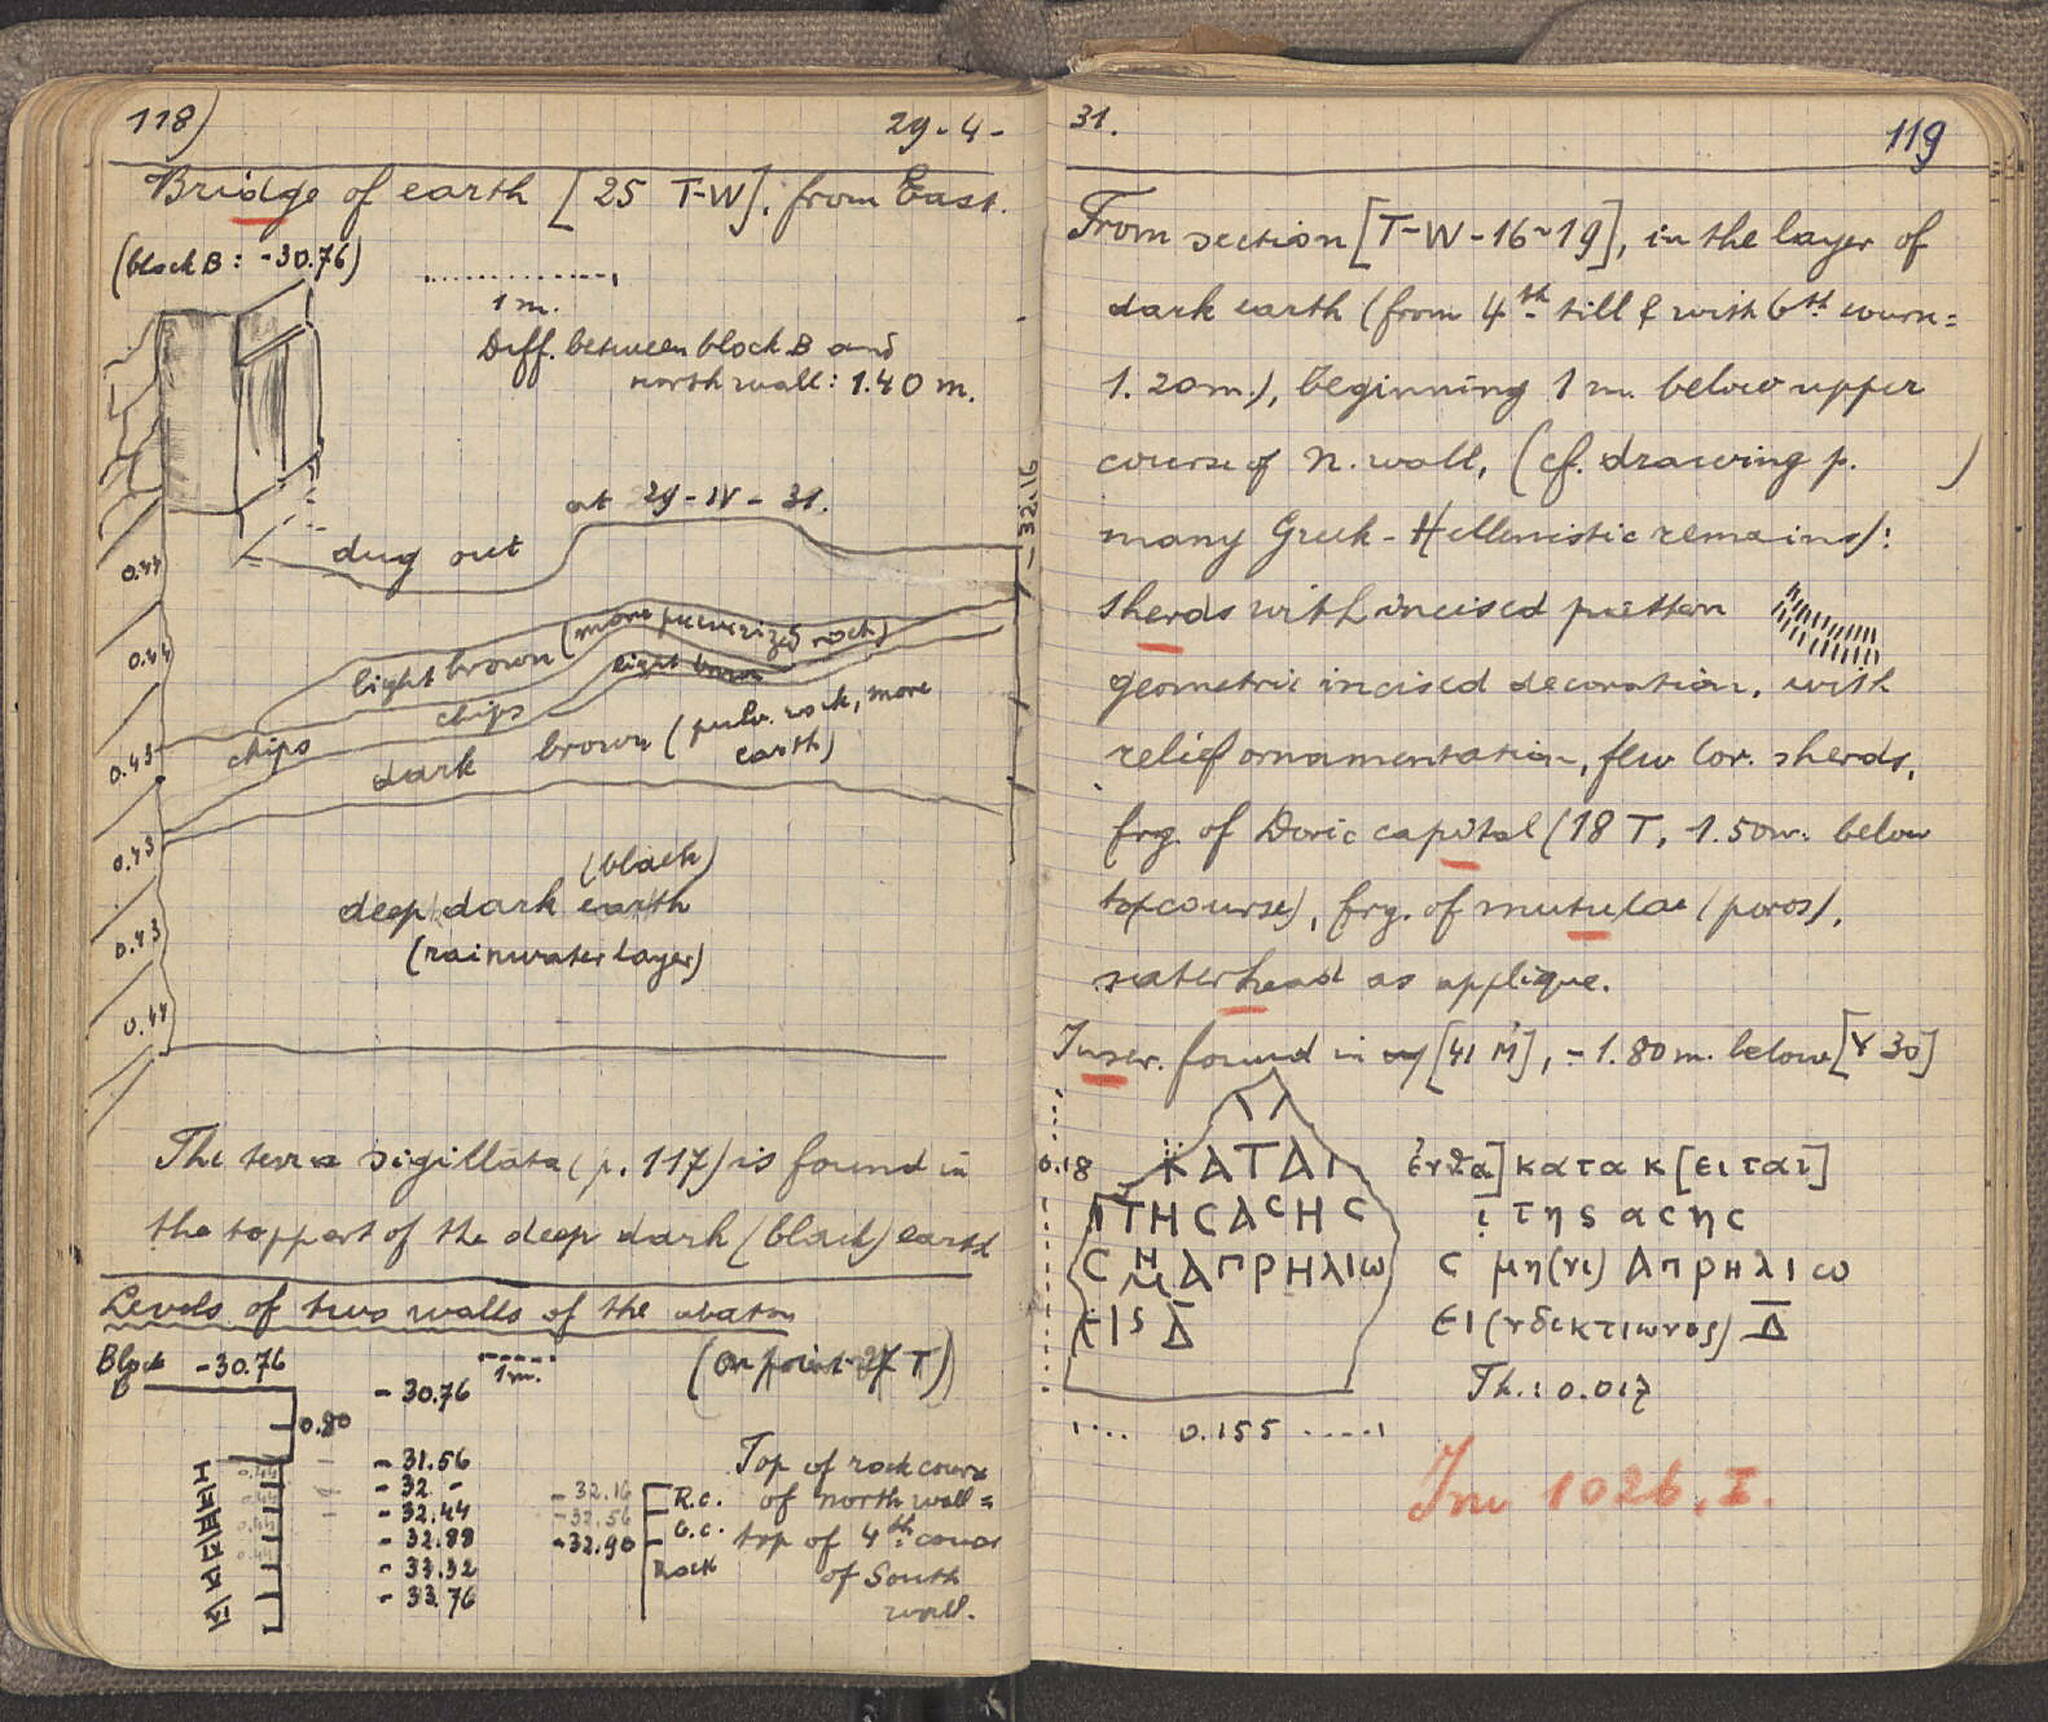 118)
29-4-
Bridge of earth [25 T-W], from East.
(block B: -30.76)
1 m.
Diff. between block B and
north wall: 1.40 m.
at 29-IV-31.
-32.16
dug out
0.44
0.44
0.43
0.43
0.43
0.44
light brown (more pulverized rock)
light brown
chips
chips
dark brown (pulv. rock, more
earth)
(black)
deep dark earth
(rainwater layer)
The terra sigillata (p. 117) is found in
the top part of the deep dark (black) earth
Levels of two walls of the abaton
Block B -30.76
1 m.
(On point 27 T)
0.80
-30.76
-31.56
-32 -
-32.44
-32.88
-33.32
-33.76
I II III IV V VI
-32.16
-32.56
-32.90
R.c.
G.c.
Rock
Top of rock course
of north wall =
top of 4th course
of South
wall.
31.
119
From section [T-W-16-19], in the layer of
dark earth (from 4th till & with 6th course
1.20m.), beginning 1 m. below upper
course of N. wall, (cf. drawing p. )
many Greek-Hellenistic remains):
sherds with incised pattern
geometric incised decoration, with
relief ornamentation, few Cor. sherds,
frg. of Doric capital (18 T, 1.50m. below
topcourse), frg. of mutulae (poros),
saterhead as applique.
Inscr. found in [41 M'], -1.80 m. below [Y 30]
0.18
ΚΑΤΑΙ
ΠΤΗϹΑϹΗϹ
Ϲ ΜΗ ΑΠΡΗΛΙω
ΕΙS Δ̅
ἐνθα] κατακ[ειται]
ι τηs αϲηϲ
ϲ μη(νι) Απρηλιω
ϵι(νδικτιωνος) Δ̅
Th.: 0.017
0.155
Inv 1026, I.